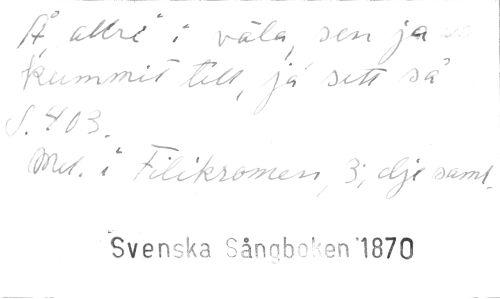 Å aldri i väla, sen ja
kummit till, ja sett så
S. 403.
Mel. i Filikromen, 3; dje saml.
Svenska Sångboken 1870